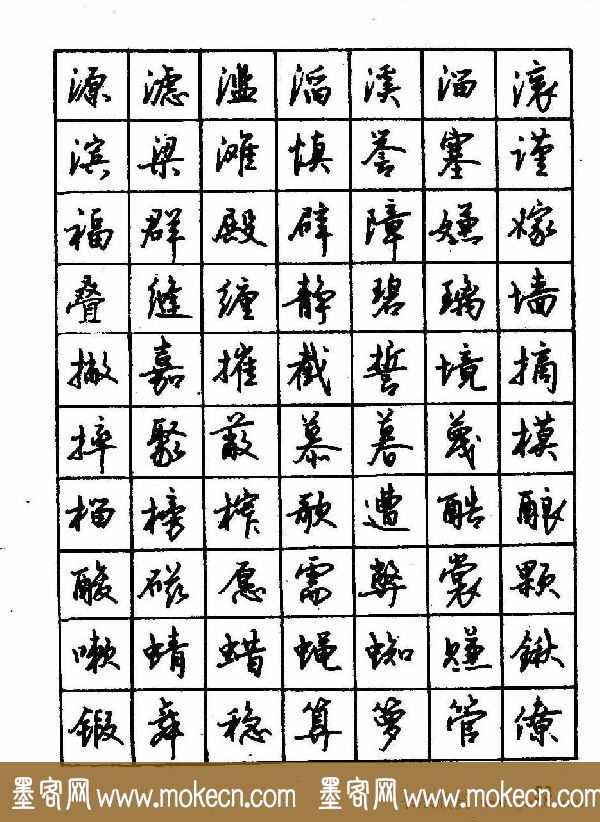 源滤滥滔溪溜滚
滨梁滩慎誉塞谨
福群殿辟障嫌嫁
叠缝缠静碧璃墙
撇嘉摧截誓境摘
摔聚蔽慕暮蔑模
榴榜榨歌遭酷酿
酸磁愿需弊裳颗
嗽蜻蜡蝇蜘赚锹
锻舞稳算箩管僚
墨客网 www.mokecn.com 墨客网 www.mokecn.com